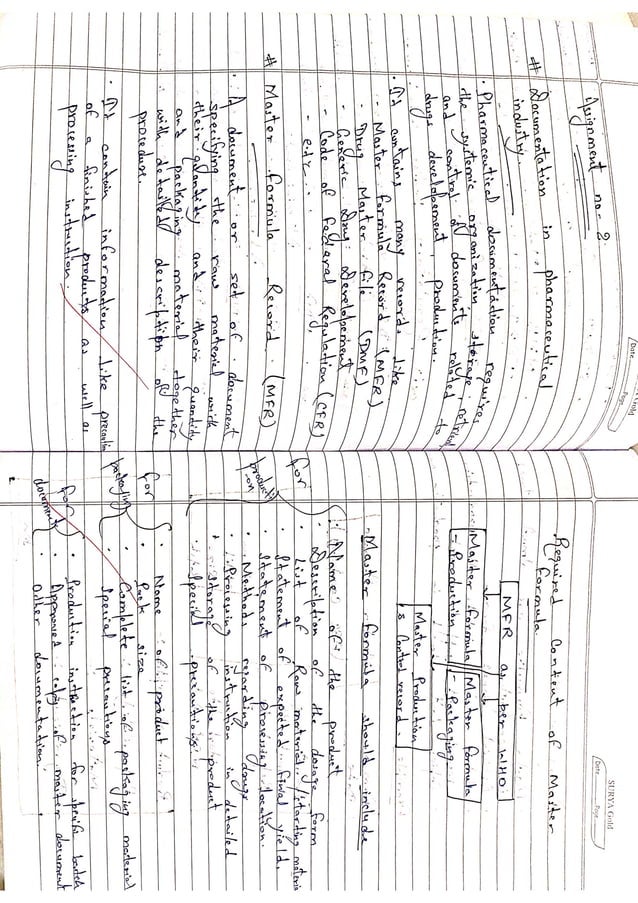 Date
Page
Assignment no- 2
# Documentation in pharmaceutical
industry
• Pharmaceutical documentation requires
the systemic organization storage,
and control of documents related to
drugs developement, production.
• It contains many records like
- Master Formula Record (MFR)
- Drug Master File (DMF)
- Generic Drug Developement
- Code of Federal Regulation (CFR)
etc.
# Master Formula Record (MFR)
• A document or set of document
specifying the raw material with
their quantity and their quantity
and packaging material together
with detailed description of the
procedure.
• It contain information like
of a finished products as well as
processing instruction
SURYA Gold
Date
Page
Required content of Master
Formula
MFR as per WHO
Master formula
- Production
Master formula
- Packaging
Master Production
& Control record.
Master formula should include
for production
• Name of the product
• Description of the dosage form
• List of Raw material/starting material
• Statement of expected final yield.
• Statement of processing location.
• Methods regarding drugs
• Processing instruction in detailed
• Storage of the product
• Special precautions.
for packaging
• Name of product
• Pack size
• Complete list of packaging material
• Special precautions
for document
• Production instruction for specific batch
• Approved copy of master document
• Other documentation.